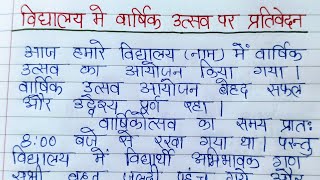 विद्यालय मे वार्षिक उत्सव पर प्रतिवेदन
आज हमारे विद्यालय (नाम) में वार्षिक
उत्सव का आयोजन किया गया।
वार्षिक उत्सव आयोजन बेहद सफल
और उद्देश्य पूर्ण रहा।
वार्षिकोत्सव का समय प्रातः
8:00 बजे से रखा गया था। परन्तु
विद्यालय में विद्यार्थी अभिभावक गुण
सभी बहुत जल्दी पहुंच गए और